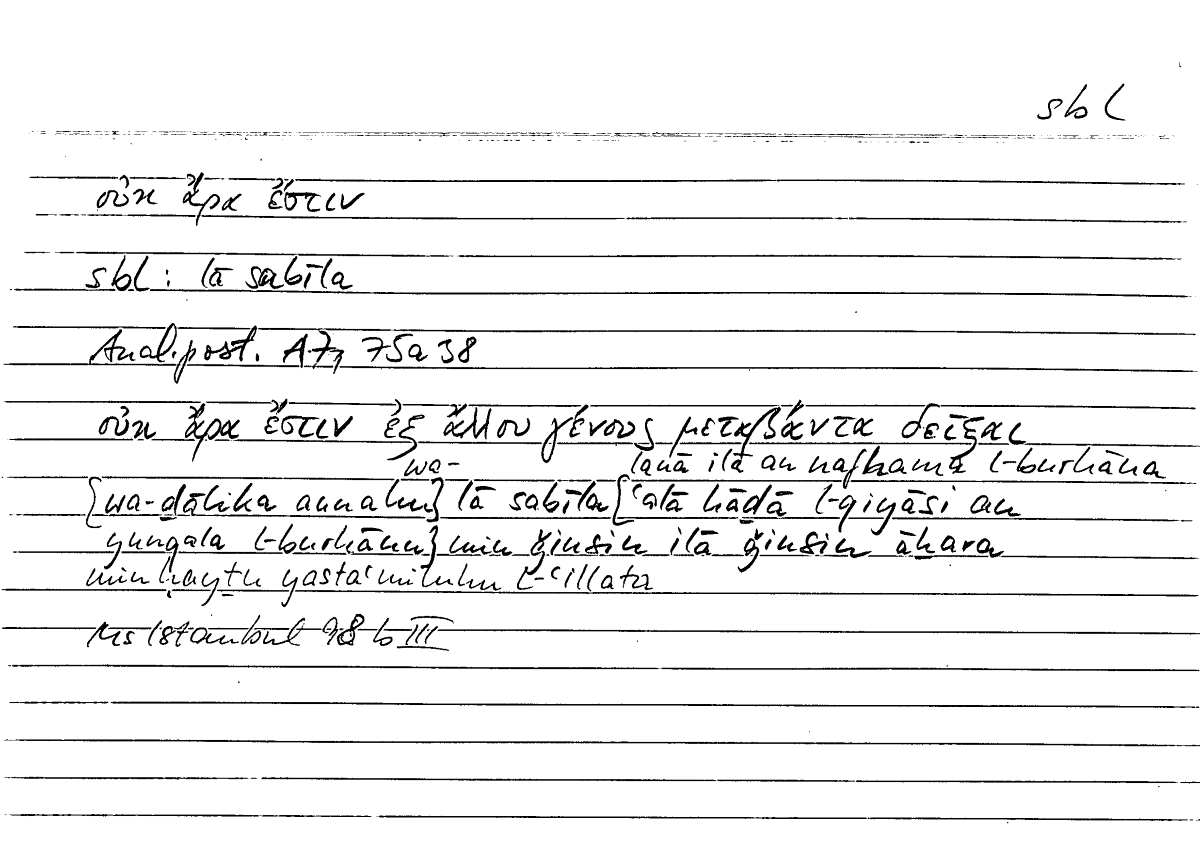 sbl
οὐκ ἄρα ἔστιν
sbl : lā sabīla
Anal.post. A7, 75a38
οὐκ ἄρα ἔστιν ἐξ ἄλλου γένους μεταβάντα δεῖξαι
wa- lanā ilā an nafhama l-burhāna
[wa-ḏālika annahu] lā sabīla [ʿalā hāḏā l-qiyāsi an
yunqala l-burhānu] min ǧinsin ilā ǧinsin āḫara
min ḥayṯu yastaʿmiluhu l-ʿillata
Ms Istanbul 98 b III